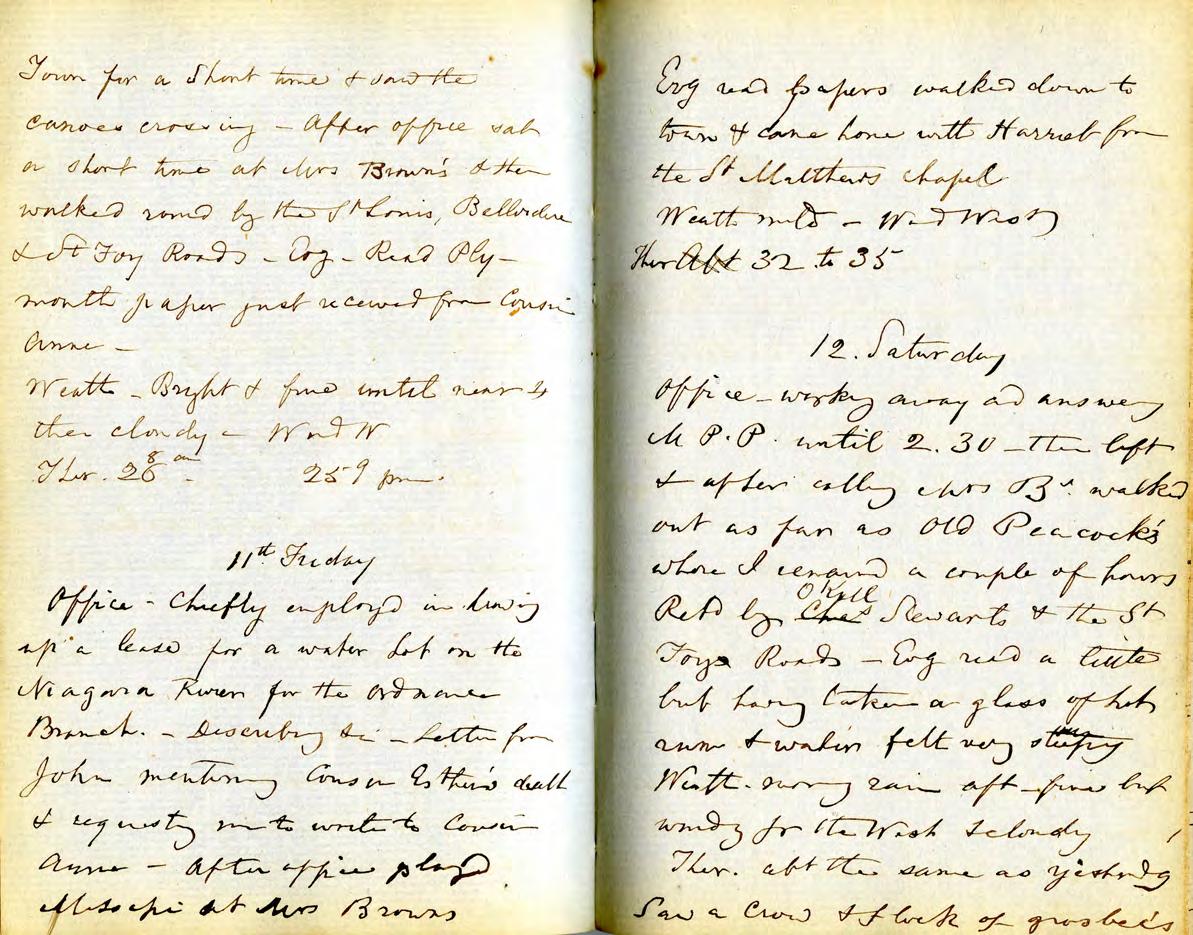 Town for a Short time & saw the
canoes crossing – After office sat
a short time at Mrs Brown's & then
walked round by the St Louis, Bellvidere
& St Foy Roads – Evg – Read Ply–
mouth paper just received from Cousin
Anne –
Weath – Bright & fine until near 4
then cloudy – Wind W
Ther. 26 8 am – 25 9 pm.
11th Friday
Office – Chiefly employd in drawing
up a lease for a water Lot on the
Niagara River for the Ordnance
Branch. – Describing &c – Letter from
John mentioning Cousin Esther's death
& requesting me to write to Cousin
Anne – After office playd
at Mrs Browns
Evg read papers walked down to
town & came home with Harriet from
the St Matthews chapel
Weath mild – Wind West
Ther Abt 32 to 35
12. Saturday
Office – working away and answerg
M P.P. until 2.30 – then left
& after calling Mrs Bs. walked
out as far as Old Peacock's
where I remaind a couple of hours
Retd by Ches Okill Stewarts & the St
Foys Roads – Evg read a little
but having taken a glass of hot
rum & water felt very sleepy
Weath. morng rain aft – fine but
windy fr the West & cloudy
Ther. abt the same as yesterdy
Saw a Crow & flock of grosbecs